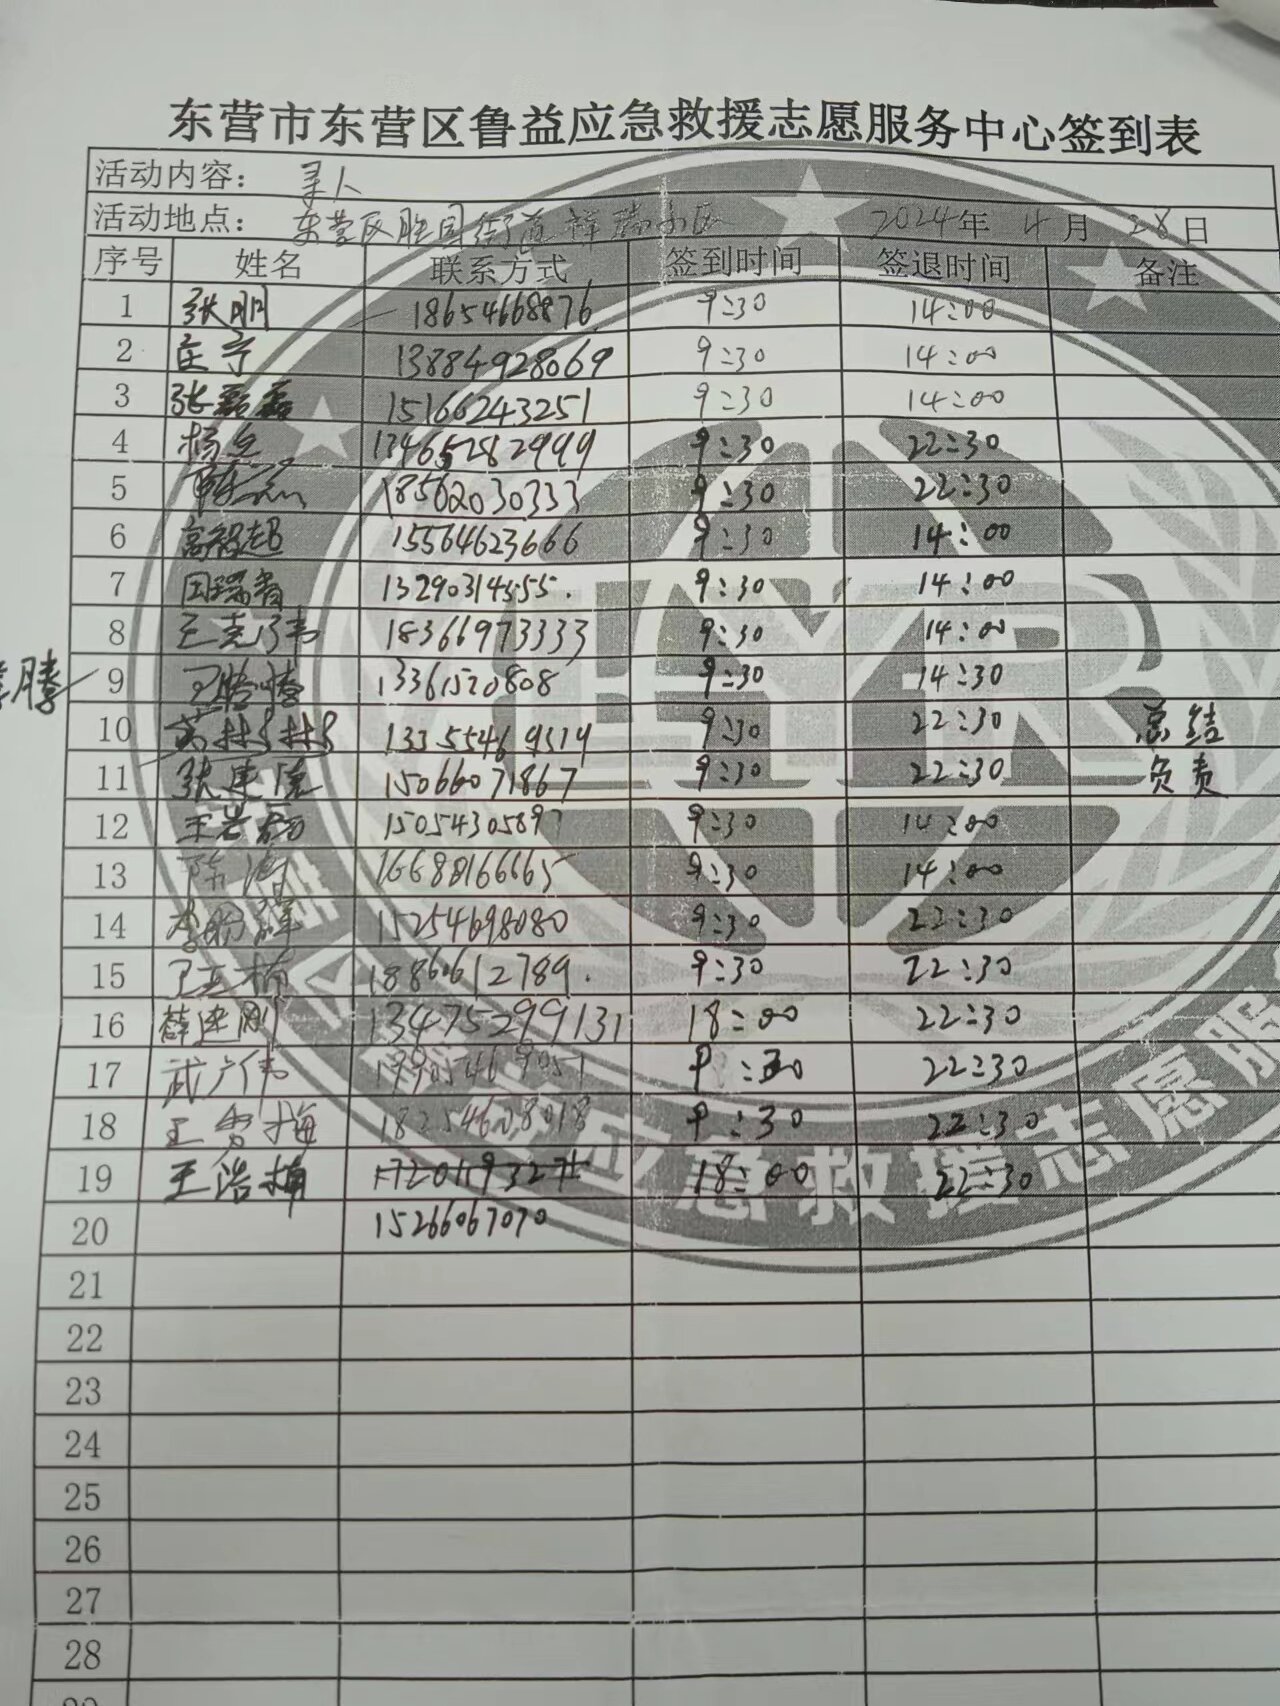 东营市东营区鲁益应急救援志愿服务中心签到表
活动内容: 寻人
活动地点: 东营区胜园街道祥瑞小区 2024年 4月 28日
序号 姓名 联系方式 签到时间 签退时间 备注
1 张明 18654668876 9:30 14:00
2 庄宁 13884928069 9:30 14:00
3 张磊磊 15166243251 9:30 14:00
4 杨 13465282999 9:30 22:30
5 18562030333 9:30 22:30
6 高智超 15564623666 9:30 14:00
7 田瑞青 13290314555. 9:30 14:00
8 王克伟 18366973333 9:30 14:00
腾 9 王 腾 13361520808 9:30 14:30
10 林林 9:30 22:30 总结
11 张建 15066071867 9:30 22:30 负责
12 王岩磊 15054305897 9:30 14:00
13 陈涛 16688166665 9:30 14:00
14 李 15254698080 9:30 22:30
15 18860612789. 9:30 22:30
16 薛建刚 13475299131 18:00 22:30
17 武广伟 9:30 22:30
18 王 梅 18254628018 9:30 22:30
19 王浩楠 18:00 22:30
20 15266067070
21
22
23
24
25
26
27
28
应急救援志愿服